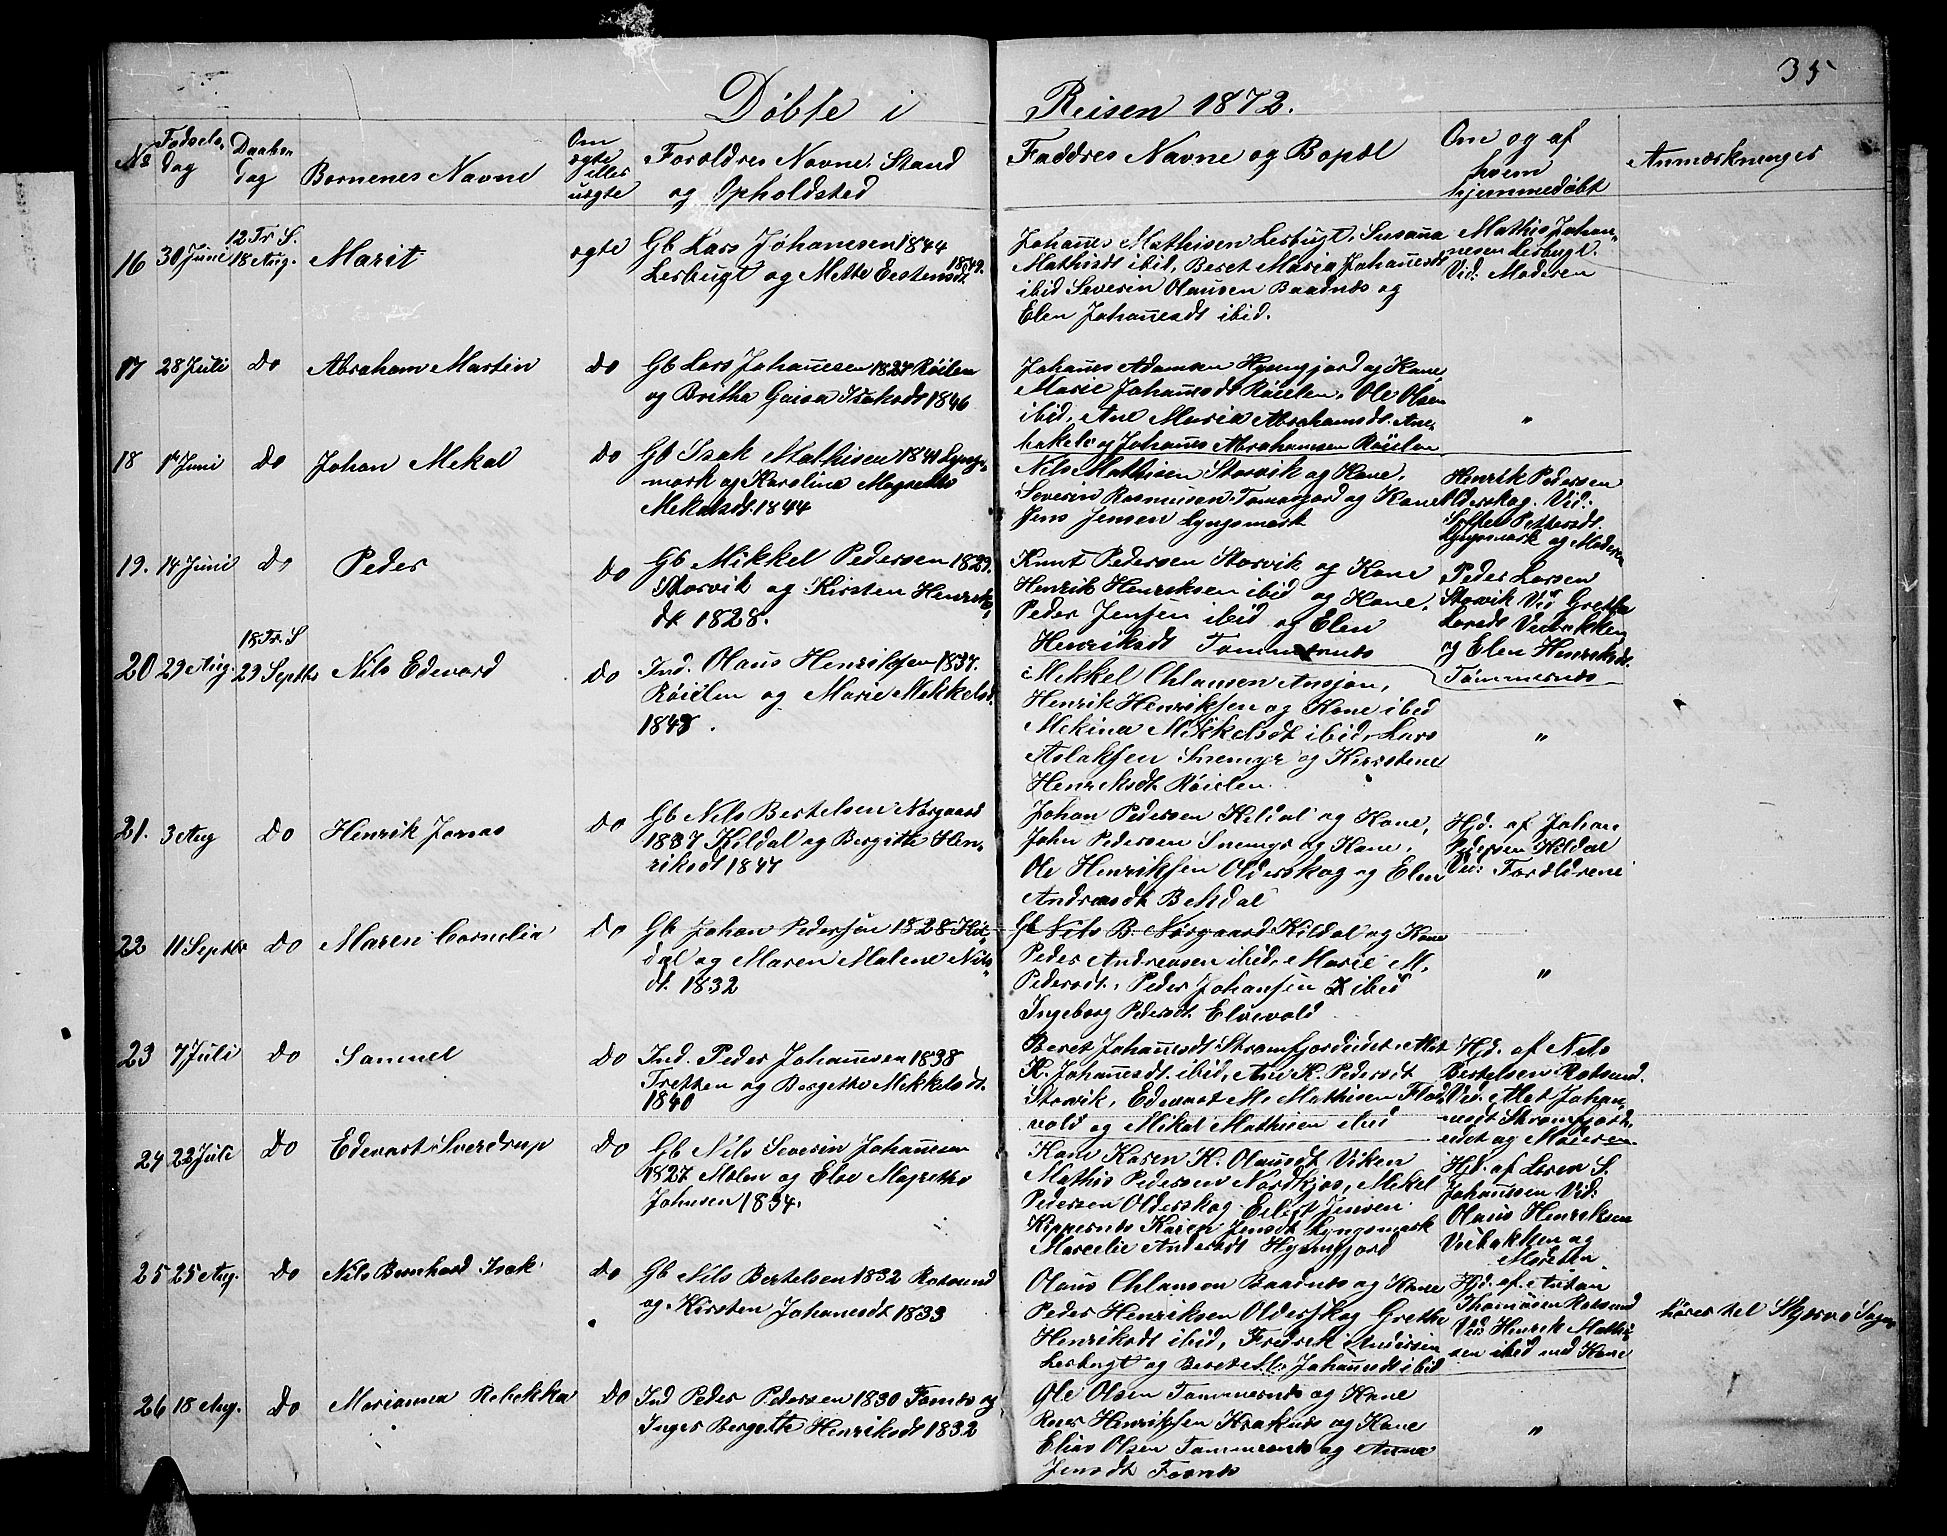 35
Døbte i Reisen 1872.
No
Fødsels dag
Daabs dag
Børnenes Navne
Om ægte eller uægte
Forældres Navne, Stand og Opholdsted
Faddres Navne og Bopæl
Om og af hvem hjemmedøbt
Anmærkninger
16 30 Juni 12 Tr. S. 18 Aug. Marit ægte
Gb Lars Johannesen 1844
Lerbugt og Mette Erstensdt. 1849.
Johanes Mathisen Lerbugt, Susana
Mathisdt ibid, Beret Maria Johanesdt
ibid Severin Olausen Baadnes og
Elen Johanesdt ibid.
Mathis Johan-
nesen Lerbugt.
Vid: Moderen
17 28 Juli Do Abraham Martin Do
Gb Lars Johanesen 1827 Røielen
og Brithe Gaisa Isaksdt 1846
Johanes Adamsen Hysingjord og Kone,
Marie Johanesdt Røielen, Ole Olsen
ibid, Ane Maria Abrahamsdt.
og Johanes Abrahamsen Røielen
"
18 1 Juni Do Johan Mekal Do
Gb Isak Mathisen 1841 Lyngs-
mark og Karoline Magrethe
Mekalsdt. 1844
Nils Mathisen Storvik og Kone,
Severin Rasmusen og Kone
Jens Jensen Lyngsmark
Henrik Pedersen
Olderskog. Vid:
Pettersdt.
Lyngsmark og Moderen
19. 14 Juni Do Peder Do
Gb Mikkel Pedersen 1829.
Storvik og Kirsten Henriks-
dt. 1828.
Knut Pedersen Storvik og Kone
Henrik Henriksen ibid og Kone,
Peder Jensen ibid og Elen
Henriksdt Tømmernes
Peder Larsen
Storvik Vid Grethe
Larsdt Veibakken
og Elen Henriksdt.
Tømmernes
20 29 Aug. 18 Tr. S 29 Septbr Nils Edevard Do
Ind. Olaus Henriksen 1837.
Røielen og Marie Mekkelsdt.
1848.
Mekkel Chlausen Ansjøn,
Henrik Henriksen og Kone ibid
Mekina Mikkelsdt ibid, Lars
Aslaksen Snemyr og Kirstene
Henriksdt Røielen
"
21. 3 Aug Do Henrik Jonas Do
Gb Nils Bertelsen Nørgaard
1837 Kildal og Bergitte Hen-
riksdt 1847
Johan Pedersen Kildal og Kone,
John Pedersen Snemyr og Kone,
Ole Henriksen Olderskog og Elen
Andreasdt Bekdal
Hjd. af Johan
Pedersen Kildal
Vid: Forældrene
22 11 Septbr Do Maren Cornelia Do
Gb Johan Pedersen 1828 Kil-
dal og Maren Malene Nils-
dt. 1832
Gb Nils B. Nørgaard Kildal og Kone
Peder Andreasen ibid, Marie M.
Pedersdt, Peder Johansen ibid
Ingeborg Pedersdt Elvevold
"
23 7 Juli Do Samuel Do
Ind. Peder Johanesen 1838
Tretten og Bergette Mekkelsdt.
1840
Beret Johanesdt Strømfjordeidet, Met
K. Johanesdt. ibid, Ane K. Pedersdt
Storvik, Edevart M. Mathisen Flod-
vold og Mikal Mathisen ibid
Hjd. af Nils
Bertelsen Rotsund.
Vid. Met Johan-
nesdt Strømfjord-
eidet og Moderen
24 22 Juli Do Edevart Sverdrup Do
Gb Nils Severin Johanesen
1827 Molen og Else Magrethe
Johnsen 1834.
Kone Karen K. Olausdt Viken
Mathis Pedersen Nordkjos, Mekel
Pedersen Olderskog Eilert Jensen
Kippernes Karen Jensdt Lyngsmark
Marcelie Andersdt Hysingjord
Hjd. af Loren S.
Johanesen Vid:
Olaus Henriksen
Veibakken og
Moderen
25 25 Aug. Do Nils Bernhard Isak Do
Gb Nils Bertelsen 1832 Rotsund
og Kirsten Johanesdt 1833
Olaus Chlauson Baadnes og Kone
Peder Henriksen Olderskog Grethe
Henriksdt ibid, Fredrik Andersen
Lerbugt og Beret M. Johanesdt ibid
Hjd. af Anton
Thomasen Rotsund
Vid: Henrik Mathi-
sen ibid med Kone
hører til Skjervø Sogn
26 18 Aug. Do Marianna Rebekka Do
Ind Peder Pedersen 1830 Fornes og
Inger Bergette Henriksdt 1832
Ole Olsen Tømmernes og Kone
Henriksen Kraknes og Kone
Elias Olsen Tømmernes og Anna
Jensdt Fornes
"